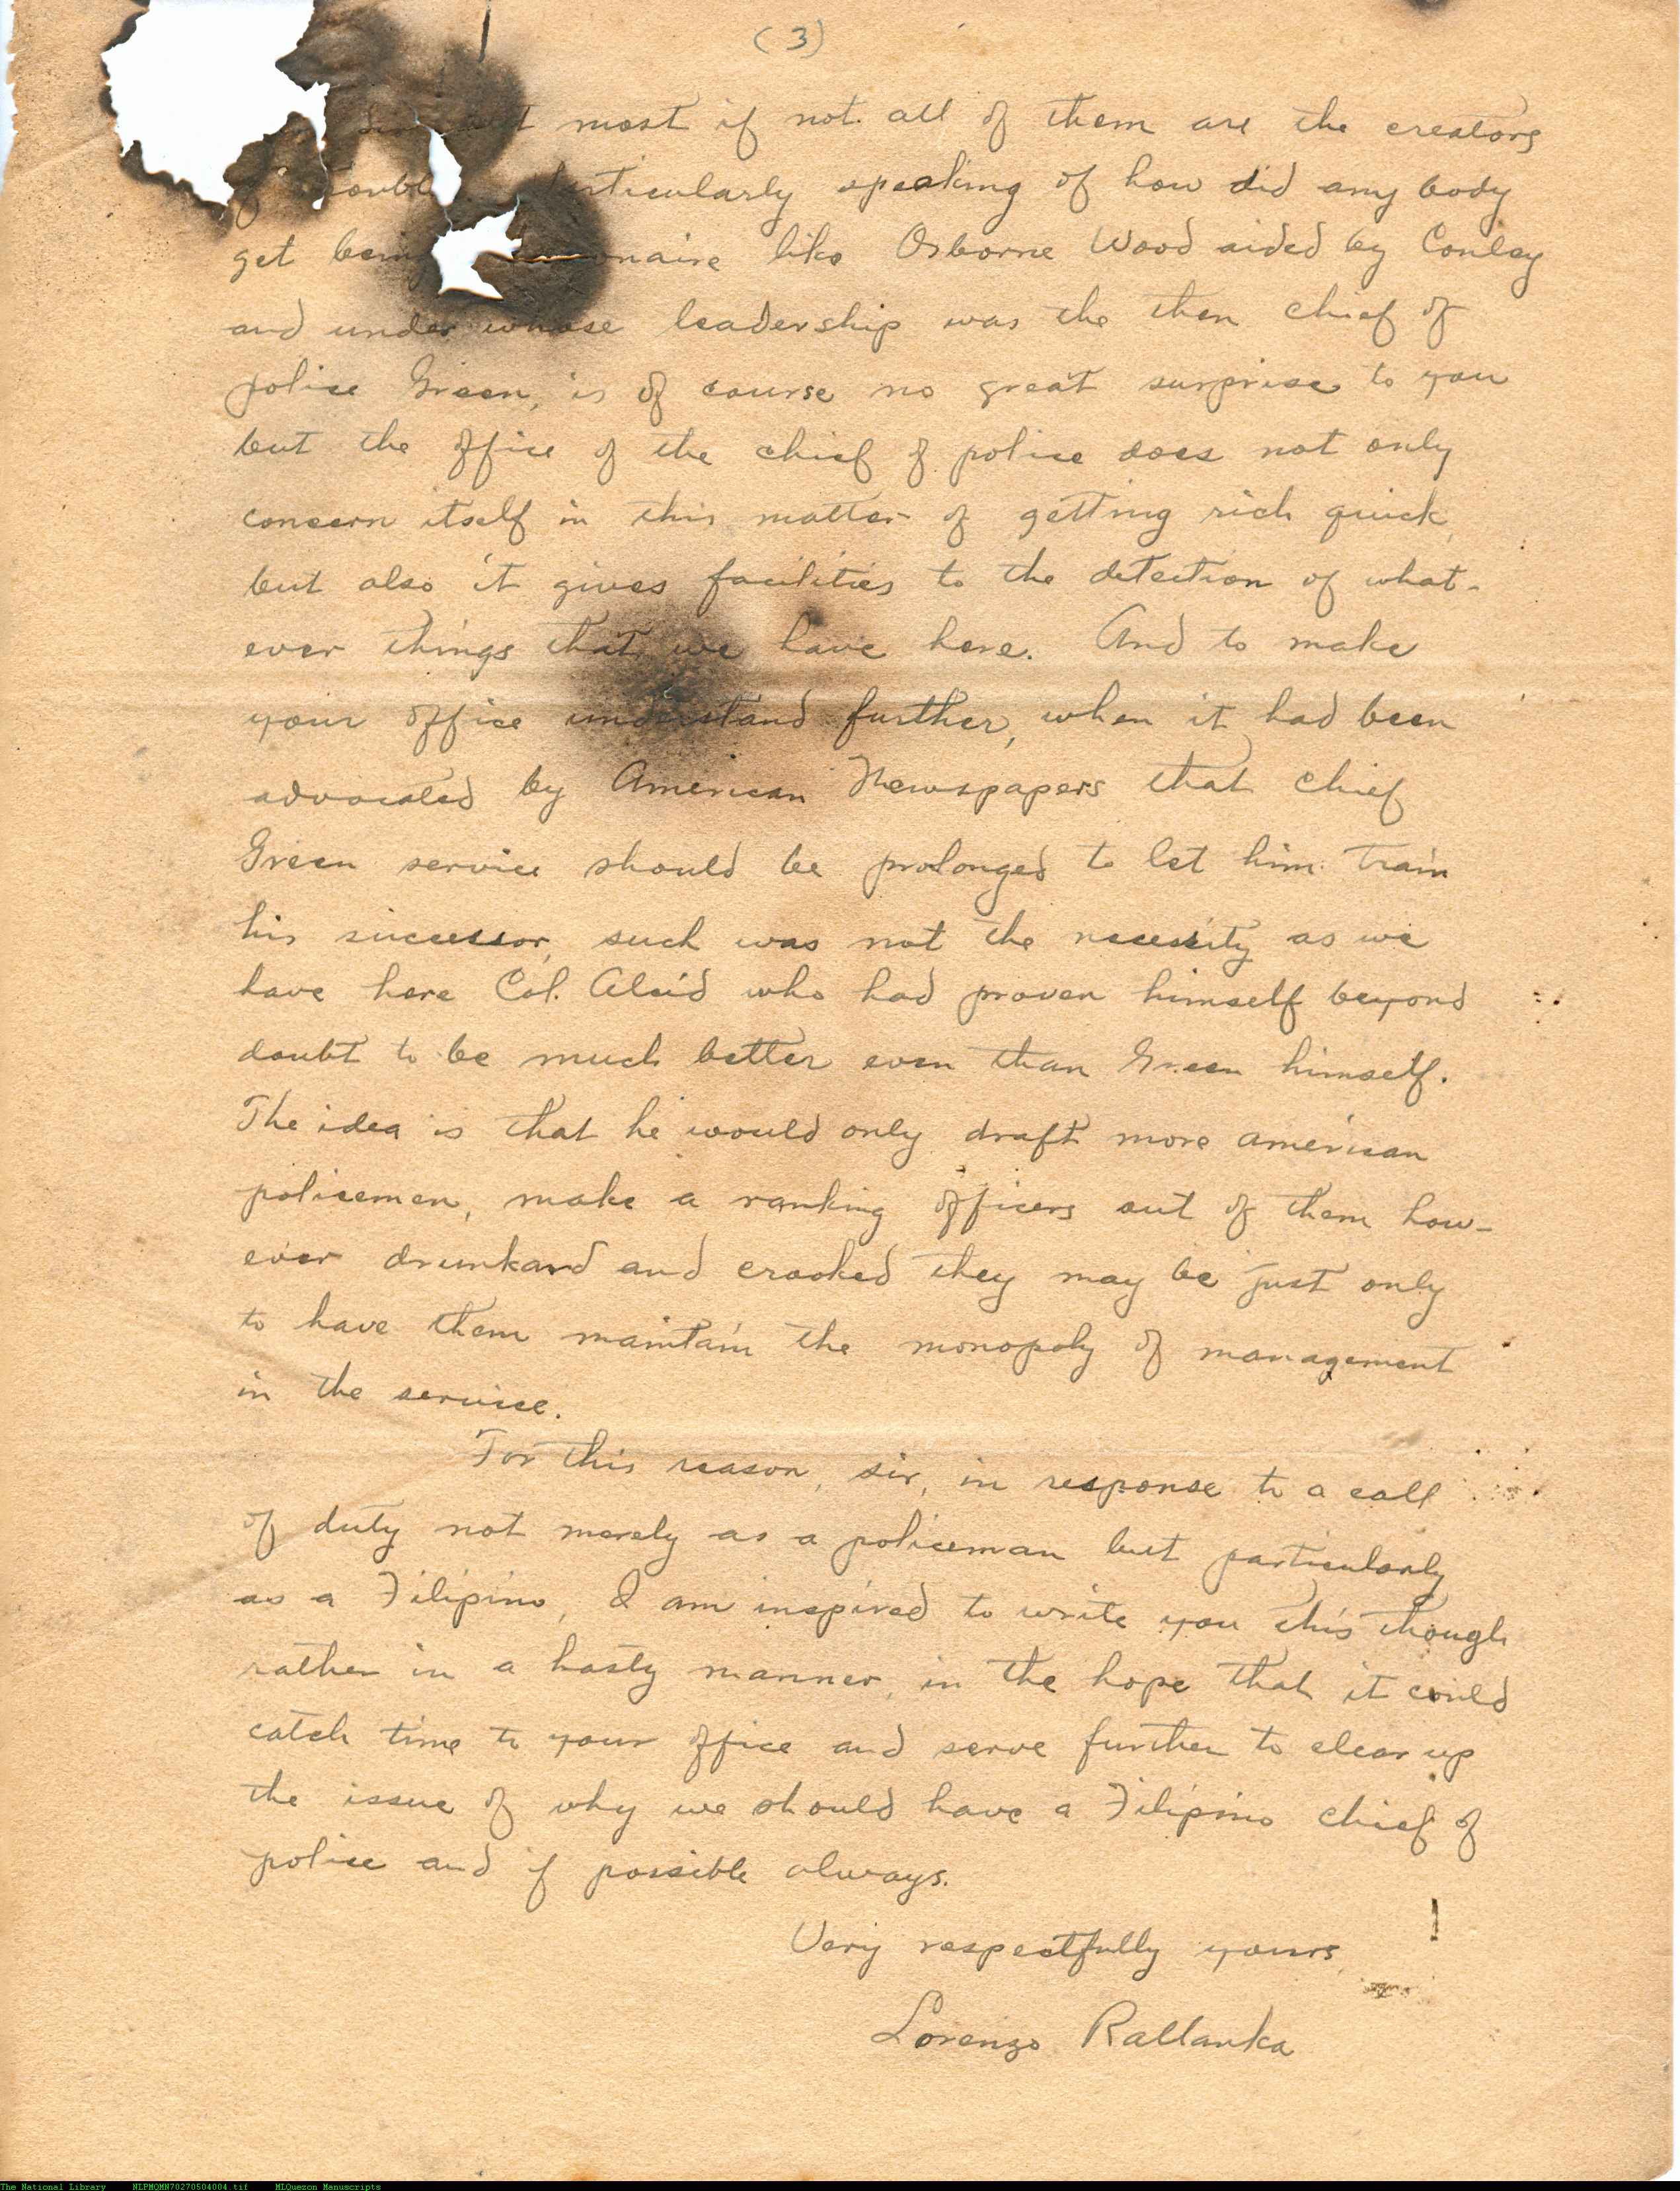 (3)
most if not all of them are the creators
particularly speaking of how did any body
get being like Osborne Wood aided by Conley
and under whose leadership was the then chief of
police Green, is of course no great surprise to you
but the office of the chief of police does not only
concern itself in this matter of getting rich quick,
but also it gives facilities to the detection of what-
ever things that we have here. And to make
your office understand further, when it had been
advocated by American Newspapers that chief
Green service should be prolonged to let him train
his successor, such was not the necessity as we
have here Col. who had proven himself beyond
doubt to be much better even than Green himself.
The idea is that he would only draft more american
policemen, make a ranking officers out of them how-
ever drunkard and crooked they may be just only
to have them maintain the monopoly of management
in the service.
For this reason, sir, in response to a call
of duty not merely as a policeman but particularly
as a Filipino, I am inspired to write you this though
rather in a hasty manner, in the hope that it could
catch time to your office and serve further to clear up
the issue of why we should have a Filipino chief of
police and if possible always.
Very respectfully yours,
Lorenzo Rallanka
The National Library NLPMQMN70270504004.tif MLQuezon Manuscripts